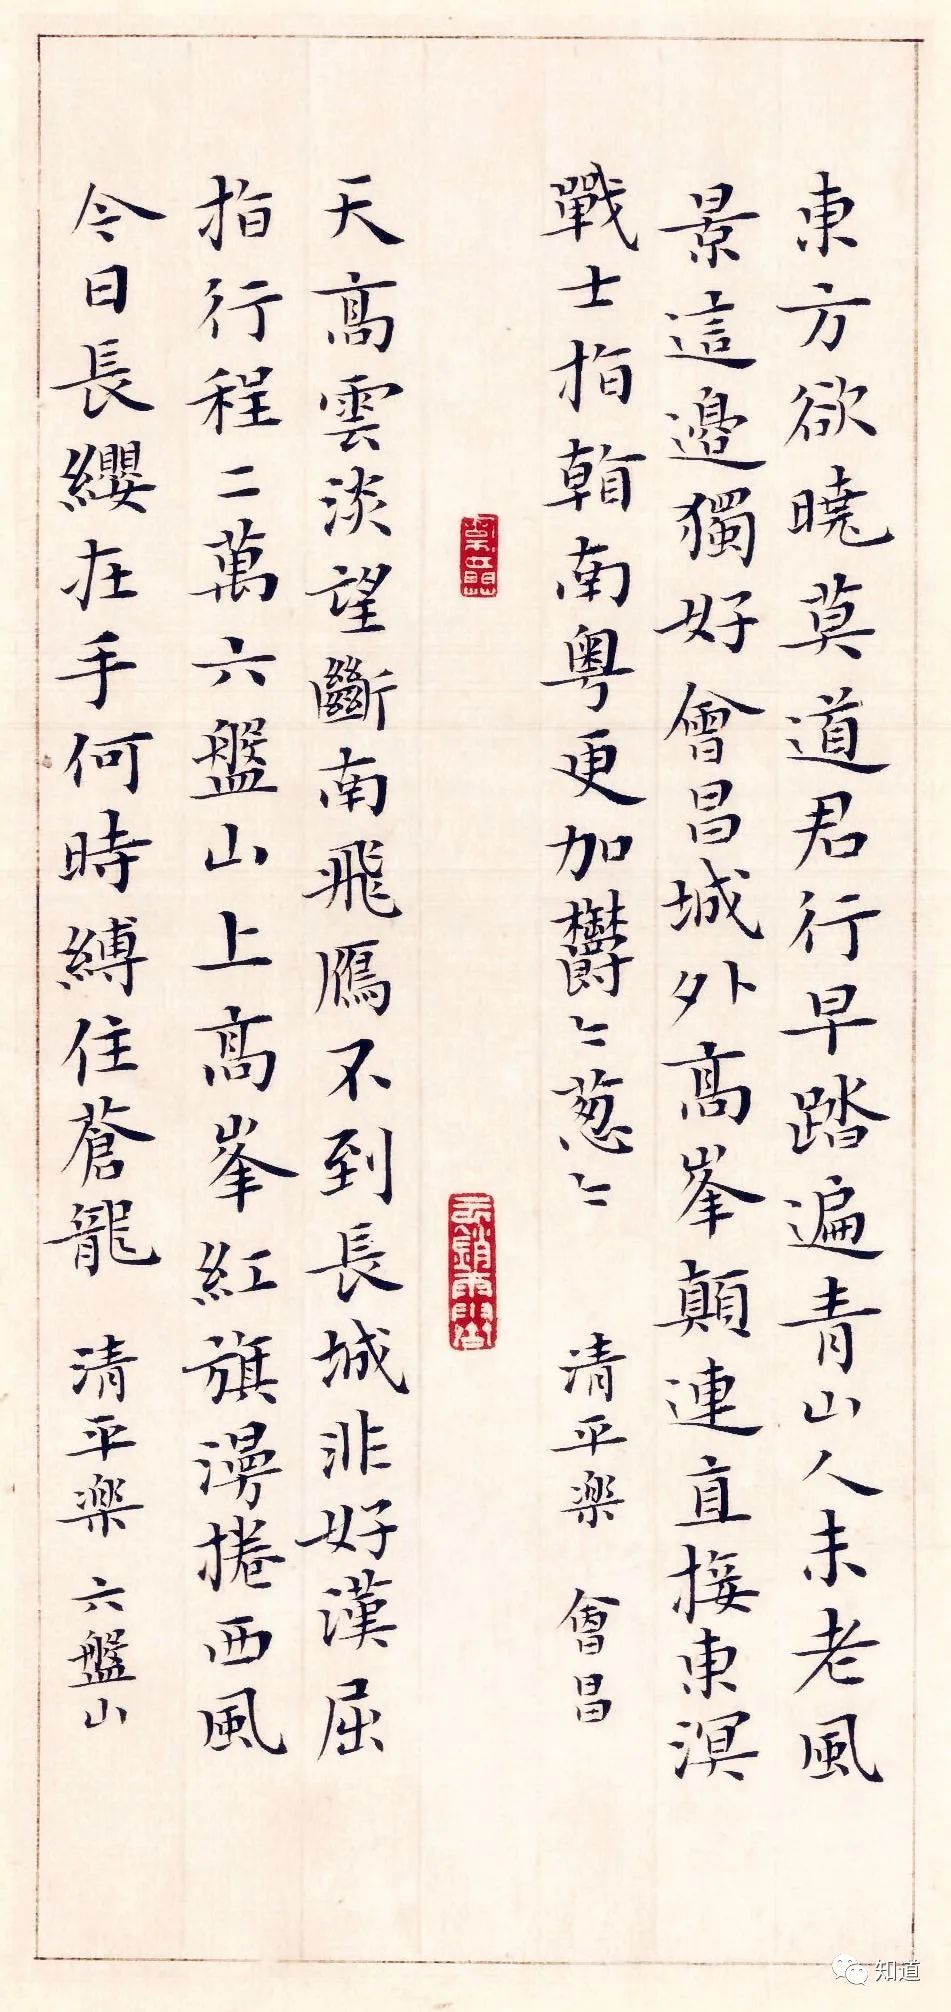 東方欲曉莫道君行早踏遍青山人未老風
景這邊獨好會昌城外髙峯顛連直接東溟
戰士指看南粵更加鬱〻葱〻 清平楽 會昌
天髙雲淡望斷南飛鴈不到長城非好漢屈
指行程二萬六盤山上髙峯紅旗漫捲西風
今日長纓在手何時縛住蒼龍 清平楽 六盤山
知道